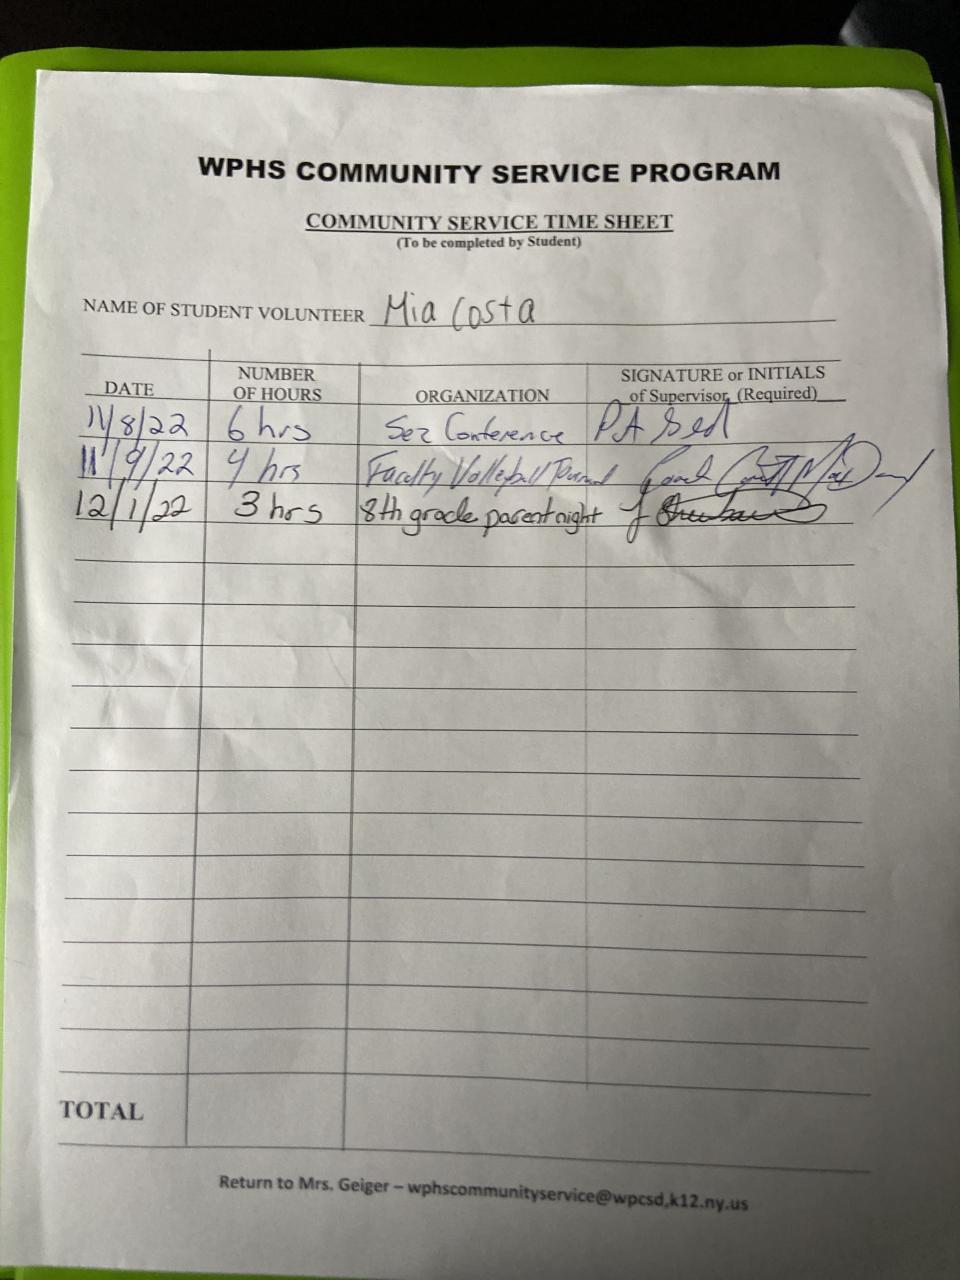 WPHS COMMUNITY SERVICE PROGRAM
COMMUNITY SERVICE TIME SHEET
(To be completed by Student)
NAME OF STUDENT VOLUNTEER Mia Costa
DATE NUMBER OF HOURS ORGANIZATION SIGNATURE or INITIALS of Supervisor (Required)
11/8/22 6 hrs Sez Conference
11/9/22 4 hrs Faculty Volleyball
12/1/22 3 hrs 8th grade parent night
TOTAL
Return to Mrs. Geiger – wphscommunityservice@wpcsd.k12.ny.us